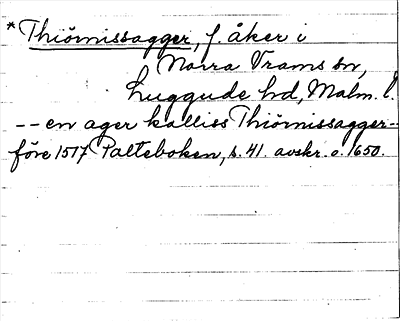 *Thiömissagger, f. åker i
Norra Vrams sn,
Luggude hd, Malm. l.
-- en ager kalliss Thiömissagger --
före 1517 Palteboken, s. 41 avskr. o. 1650.